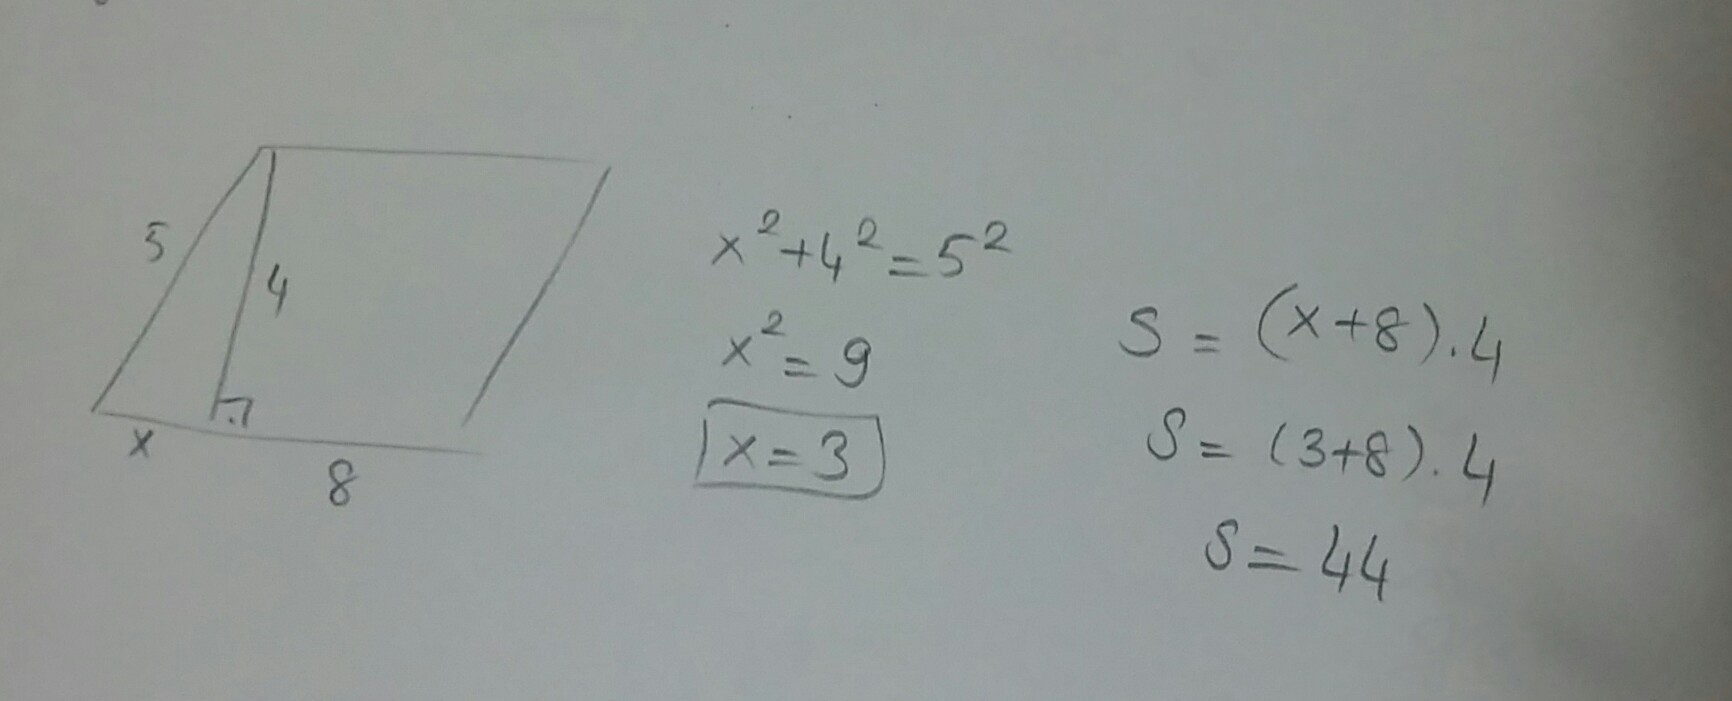 5
4
x
8
x²+4²=5²
x²=9
x=3
S = (x+8).4
S = (3+8).4
S = 44